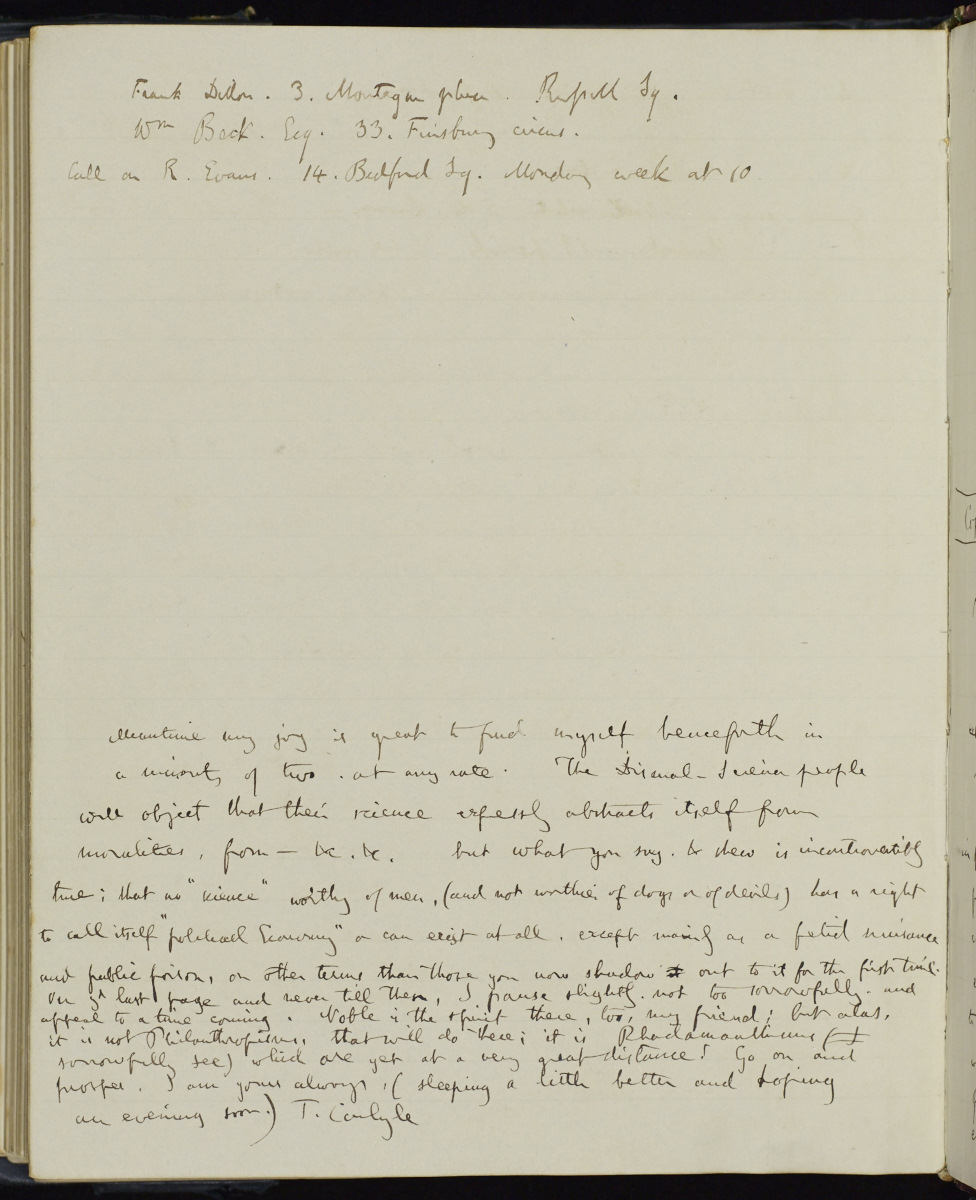 Frank Dillon. 3. Montague place. Russell Sq.
Wm Beck. Esq. 33. Finsbury circus.
Call on R. Evans. 14. Bedford Sq. Monday week at 10
Meantime my joy is great to find myself henceforth in
a minority of two. at any rate. The Dismal-Science people
will object that their science expressly abstracts itself from
moralities, from - &c. &c. but what you say. & shew is incontrovertibly
true; that no "science" worthy of men, (and not worthier of dogs or of devils) has a right
to call itself "political Economy" or can exist at all, except mainly as a fetid nuisance
and public poison, on other terms than those you now shadow out to it for the first time.
On yr last page and never till then, I pause slightly. not too sorrowfully. and
appeal to a time coming. Noble is the spirit there, too, my friend; but alas,
it is not Philanthropisms, that will do there; it is Rhadamanthisms (I
sorrowfully see) which are yet at a very great distance! Go on and
prosper. I am yours always, (sleeping a little better and hoping
an evening soon.) T. Carlyle